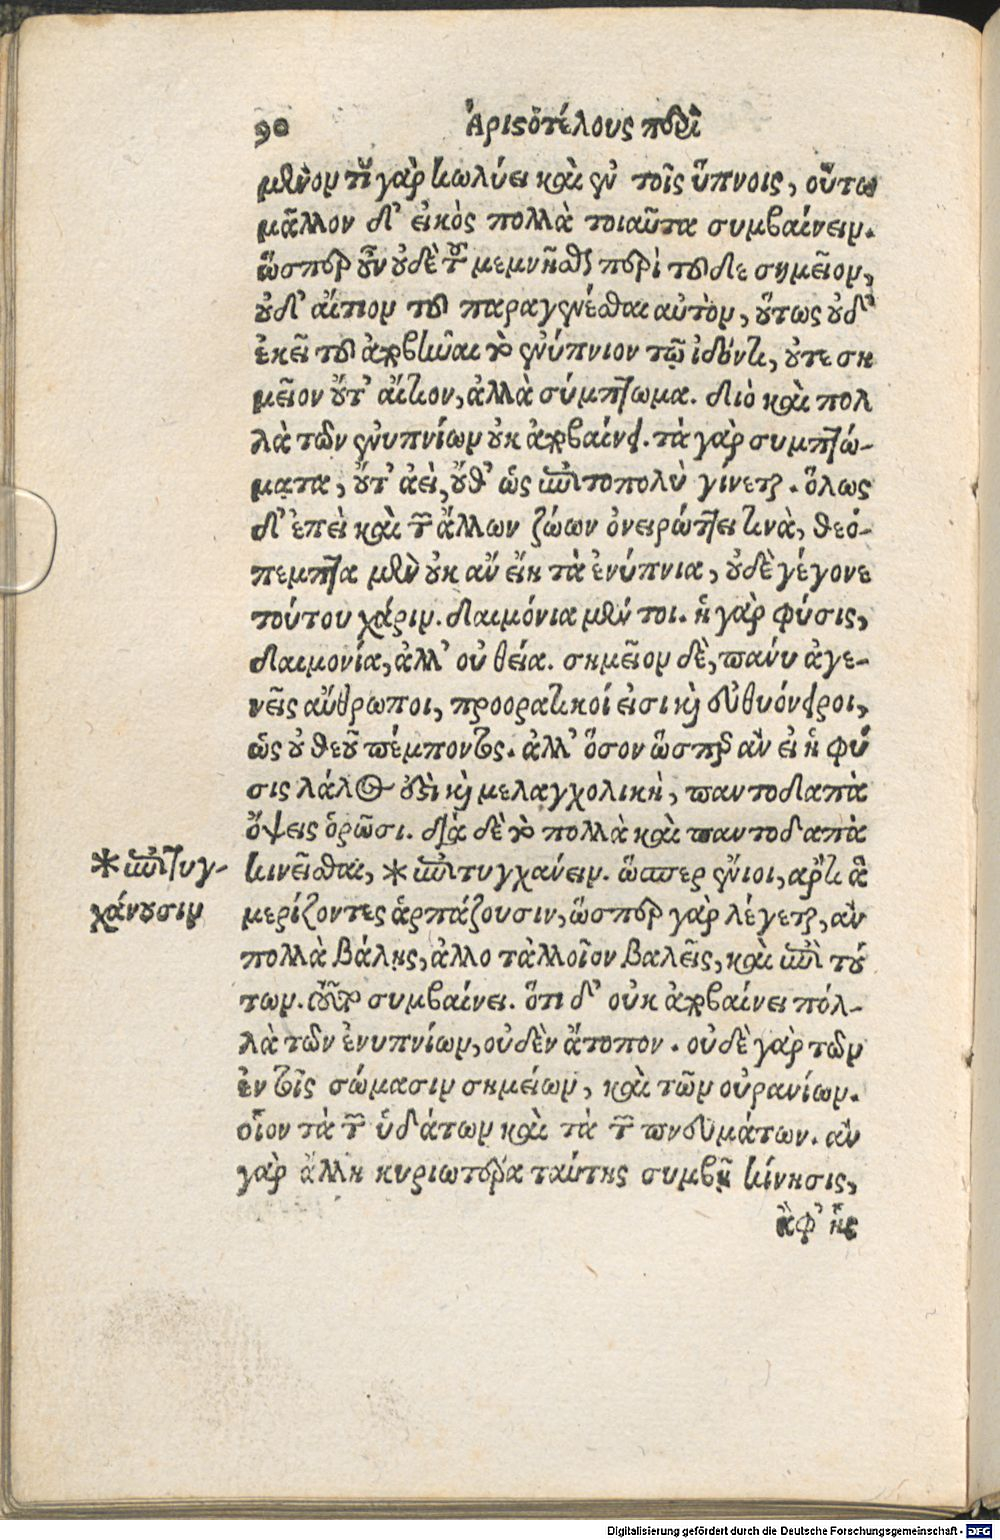 90 Ἀριστοτέλους περὶ
μενον τί γὰρ κωλύει καὶ ἐν τοῖς ὕπνοις, οὕτω
μᾶλλον δ' εἰκὸς πολλὰ τοιαῦτα συμβαίνειν.
ὥσπερ οὖν οὐδὲ τὸ μεμνῆσθαι περὶ τοῦδε σημεῖον,
οὐδ' αἴτιον τοῦ παραγενέσθαι αὐτὸν, οὕτως οὐδ'
ἐκεῖ τοῦ ἀποβῆναι τὸ ἐνύπνιον τῷ ἰδόντι, οὔτε ση
μεῖον οὔτ' αἴτιον, ἀλλὰ σύμπτωμα. διὸ καὶ πολ
λὰ τῶν ἐνυπνίων οὐκ ἀποβαίνει. τὰ γὰρ συμπτώ-
ματα, οὔτ' ἀεὶ, οὔθ' ὡς ἐπιτοπολὺ γίνεται. ὅλως
δ' ἐπεὶ καὶ τῶν ἄλλων ζώων ὀνειρώττει τινὰ, θεό-
πεμπτα μὲν οὐκ ἂν εἴη τὰ ἐνύπνια, οὐδὲ γέγονε
τούτου χάριν. δαιμόνια μέν τοι. ἡ γὰρ φύσις,
δαιμονία, ἀλλ' οὐ θεία. σημεῖον δὲ, πάνυ ἀγε-
νεῖς ἄνθρωποι, προορατικοί εἰσι καὶ εὐθυόνειροι,
ὡς οὐ θεοῦ πέμποντος. ἀλλ' ὅσον ὥσπερ ἂν εἰ ἡ φύ
σις λάλος οὖσι καὶ μελαγχολικὴ, παντοδαπὰ
ὄψεις ὁρῶσι. διὰ δὲ τὸ πολλὰ καὶ παντοδαπὰ
*ἐπιτυγ- κινεῖσθαι, * ἐπιτυγχάνειν. ὥσπερ ἔνιοι, ἄρτι ἃ
χάνουσιν μερίζοντες ἁρπάζουσιν, ὥσπερ γὰρ λέγεται, ἂν
πολλὰ βάλῃς, ἄλλο τἀλλοῖον βαλεῖς, καὶ ἐπὶ τού
των. τοῦτο συμβαίνει. ὅτι δ' οὐκ ἀποβαίνει πόλ-
λὰ τῶν ἐνυπνίων, οὐδὲν ἄτοπον. οὐδὲ γὰρ τῶν
ἐν τοῖς σώμασιν σημείων, καὶ τῶν οὐρανίων.
οἷον τὰ τῶν ὑδάτων καὶ τὰ τῶν πνευμάτων. ἂν
γὰρ ἄλλη κυριωτέρα ταύτης συμβῇ κίνησις,
ἀφ' ἧς
Digitalisierung gefördert durch die Deutsche Forschungsgemeinschaft - DFG